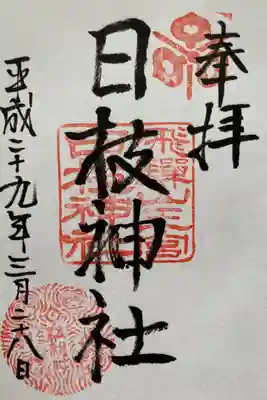 奉拝
日枝神社
平成二十九年三月二十八日
飛騨山王宮
日枝神社